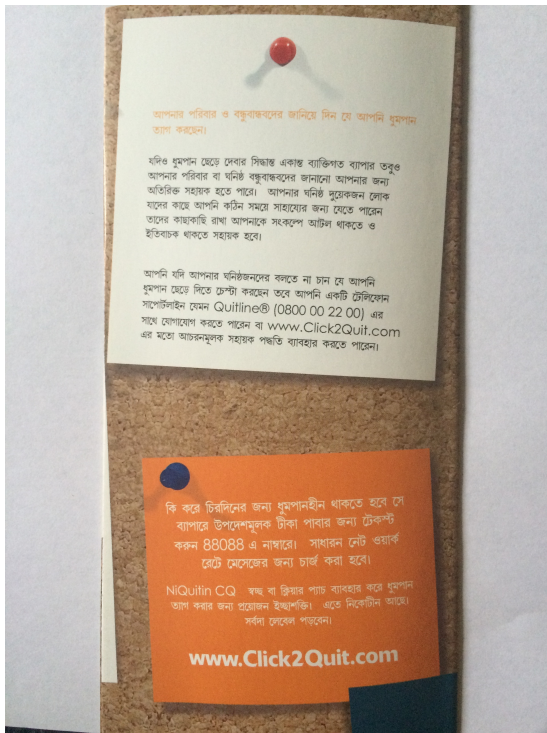 আপনার পরিবার ও বন্ধুবান্ধবদের জানিয়ে দিন যে আপনি ধুমপান
ত্যাগ করছেন।
যদিও ধুমপান ছেড়ে দেবার সিদ্ধান্ত একান্ত ব্যাক্তিগত ব্যাপার তবুও
আপনার পরিবার বা ঘনিষ্ঠ বন্ধুবান্ধবদের জানানো আপনার জন্য
অতিরিক্ত সহায়ক হতে পারে। আপনার ঘনিষ্ঠ দুয়েকজন লোক
যাদের কাছে আপনি কঠিন সময়ে সাহায্যের জন্য যেতে পারেন
তাদের কাছাকাছি রাখা আপনাকে সংকল্পে আটল থাকতে ও
ইতিবাচক থাকতে সহায়ক হবে।
আপনি যদি আপনার ঘনিষ্ঠজনদের বলতে না চান যে আপনি
ধুমপান ছেড়ে দিতে চেস্টা করছেন তবে আপনি একটি টেলিফোন
সাপোর্টলাইন যেমন Quitline® (0800 00 22 00) এর
সাথে যোগাযোগ করতে পারেন বা www.Click2Quit.com
এর মতো আচরনমূলক সহায়ক পদ্ধতি ব্যাবহার করতে পারেন।
কি করে চিরদিনের জন্য ধুমপানহীন থাকতে হবে সে
ব্যাপারে উপদেশমূলক টীকা পাবার জন্য টেকস্ট
করুন 88088 এ নাম্বারে। সাধারন নেট ওয়ার্ক
রেটে মেসেজের জন্য চার্জ করা হবে।
NiQuitin CQ স্বচ্ছ বা ক্লিয়ার প্যাচ ব্যাবহার করে ধুমপান
ত্যাগ করার জন্য প্রয়োজন ইচ্ছাশক্তি। এতে নিকোটীন আছে।
সর্বদা লেবেল পড়বেন।
www.Click2Quit.com